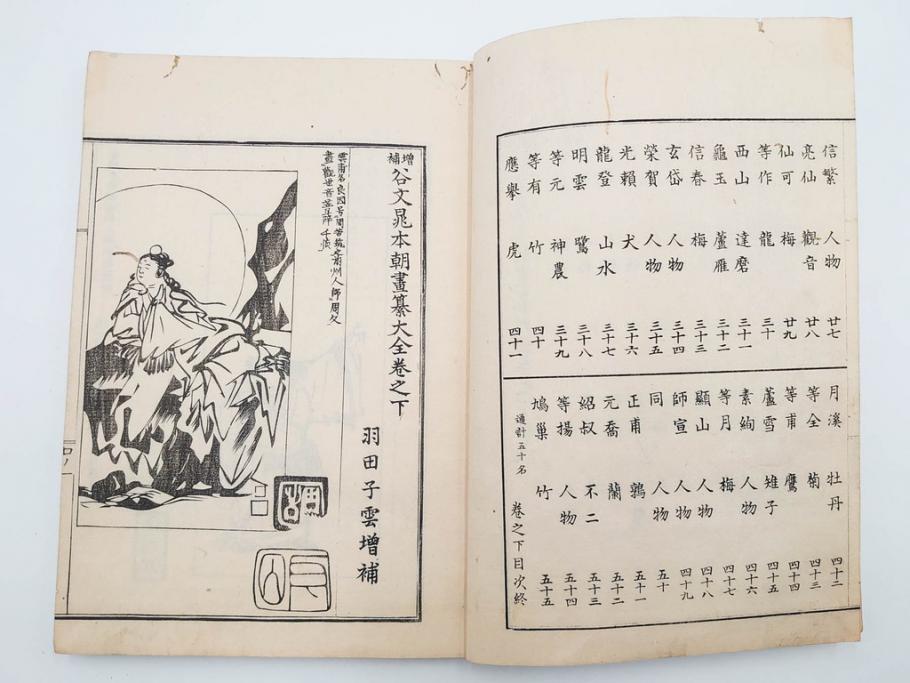 信繁 人物 廿七
亮仙 觀音 廿八
仙可 梅 廿九
等作 龍 三十
西山 達磨 三十一
龜玉 蘆雁 三十二
信春 梅 三十三
玄岱 人物 三十四
榮賀 人物 三十五
光賴 犬 三十六
龍登 山水 三十七
明雲 鷺 三十八
等元 神農 三十九
等有 竹 四十
應擧 虎 四十一
月溪 牡丹 四十二
等全 菊 四十三
等甫 鷹 四十四
蘆雪 雉子 四十五
素絢 人物 四十六
等月 梅 四十七
顯山 人物 四十八
師宣 人物 四十九
同 人物 五十
正甫 鶉 五十一
元喬 蘭 五十二
紹叔 不二 五十三
等揚 人物 五十四
鳩巢 竹 五十五
通計五十名 卷之下目次終
增補谷文晁本朝畫纂大全卷之下
羽田子雲增補
人師周文
畫觀世音